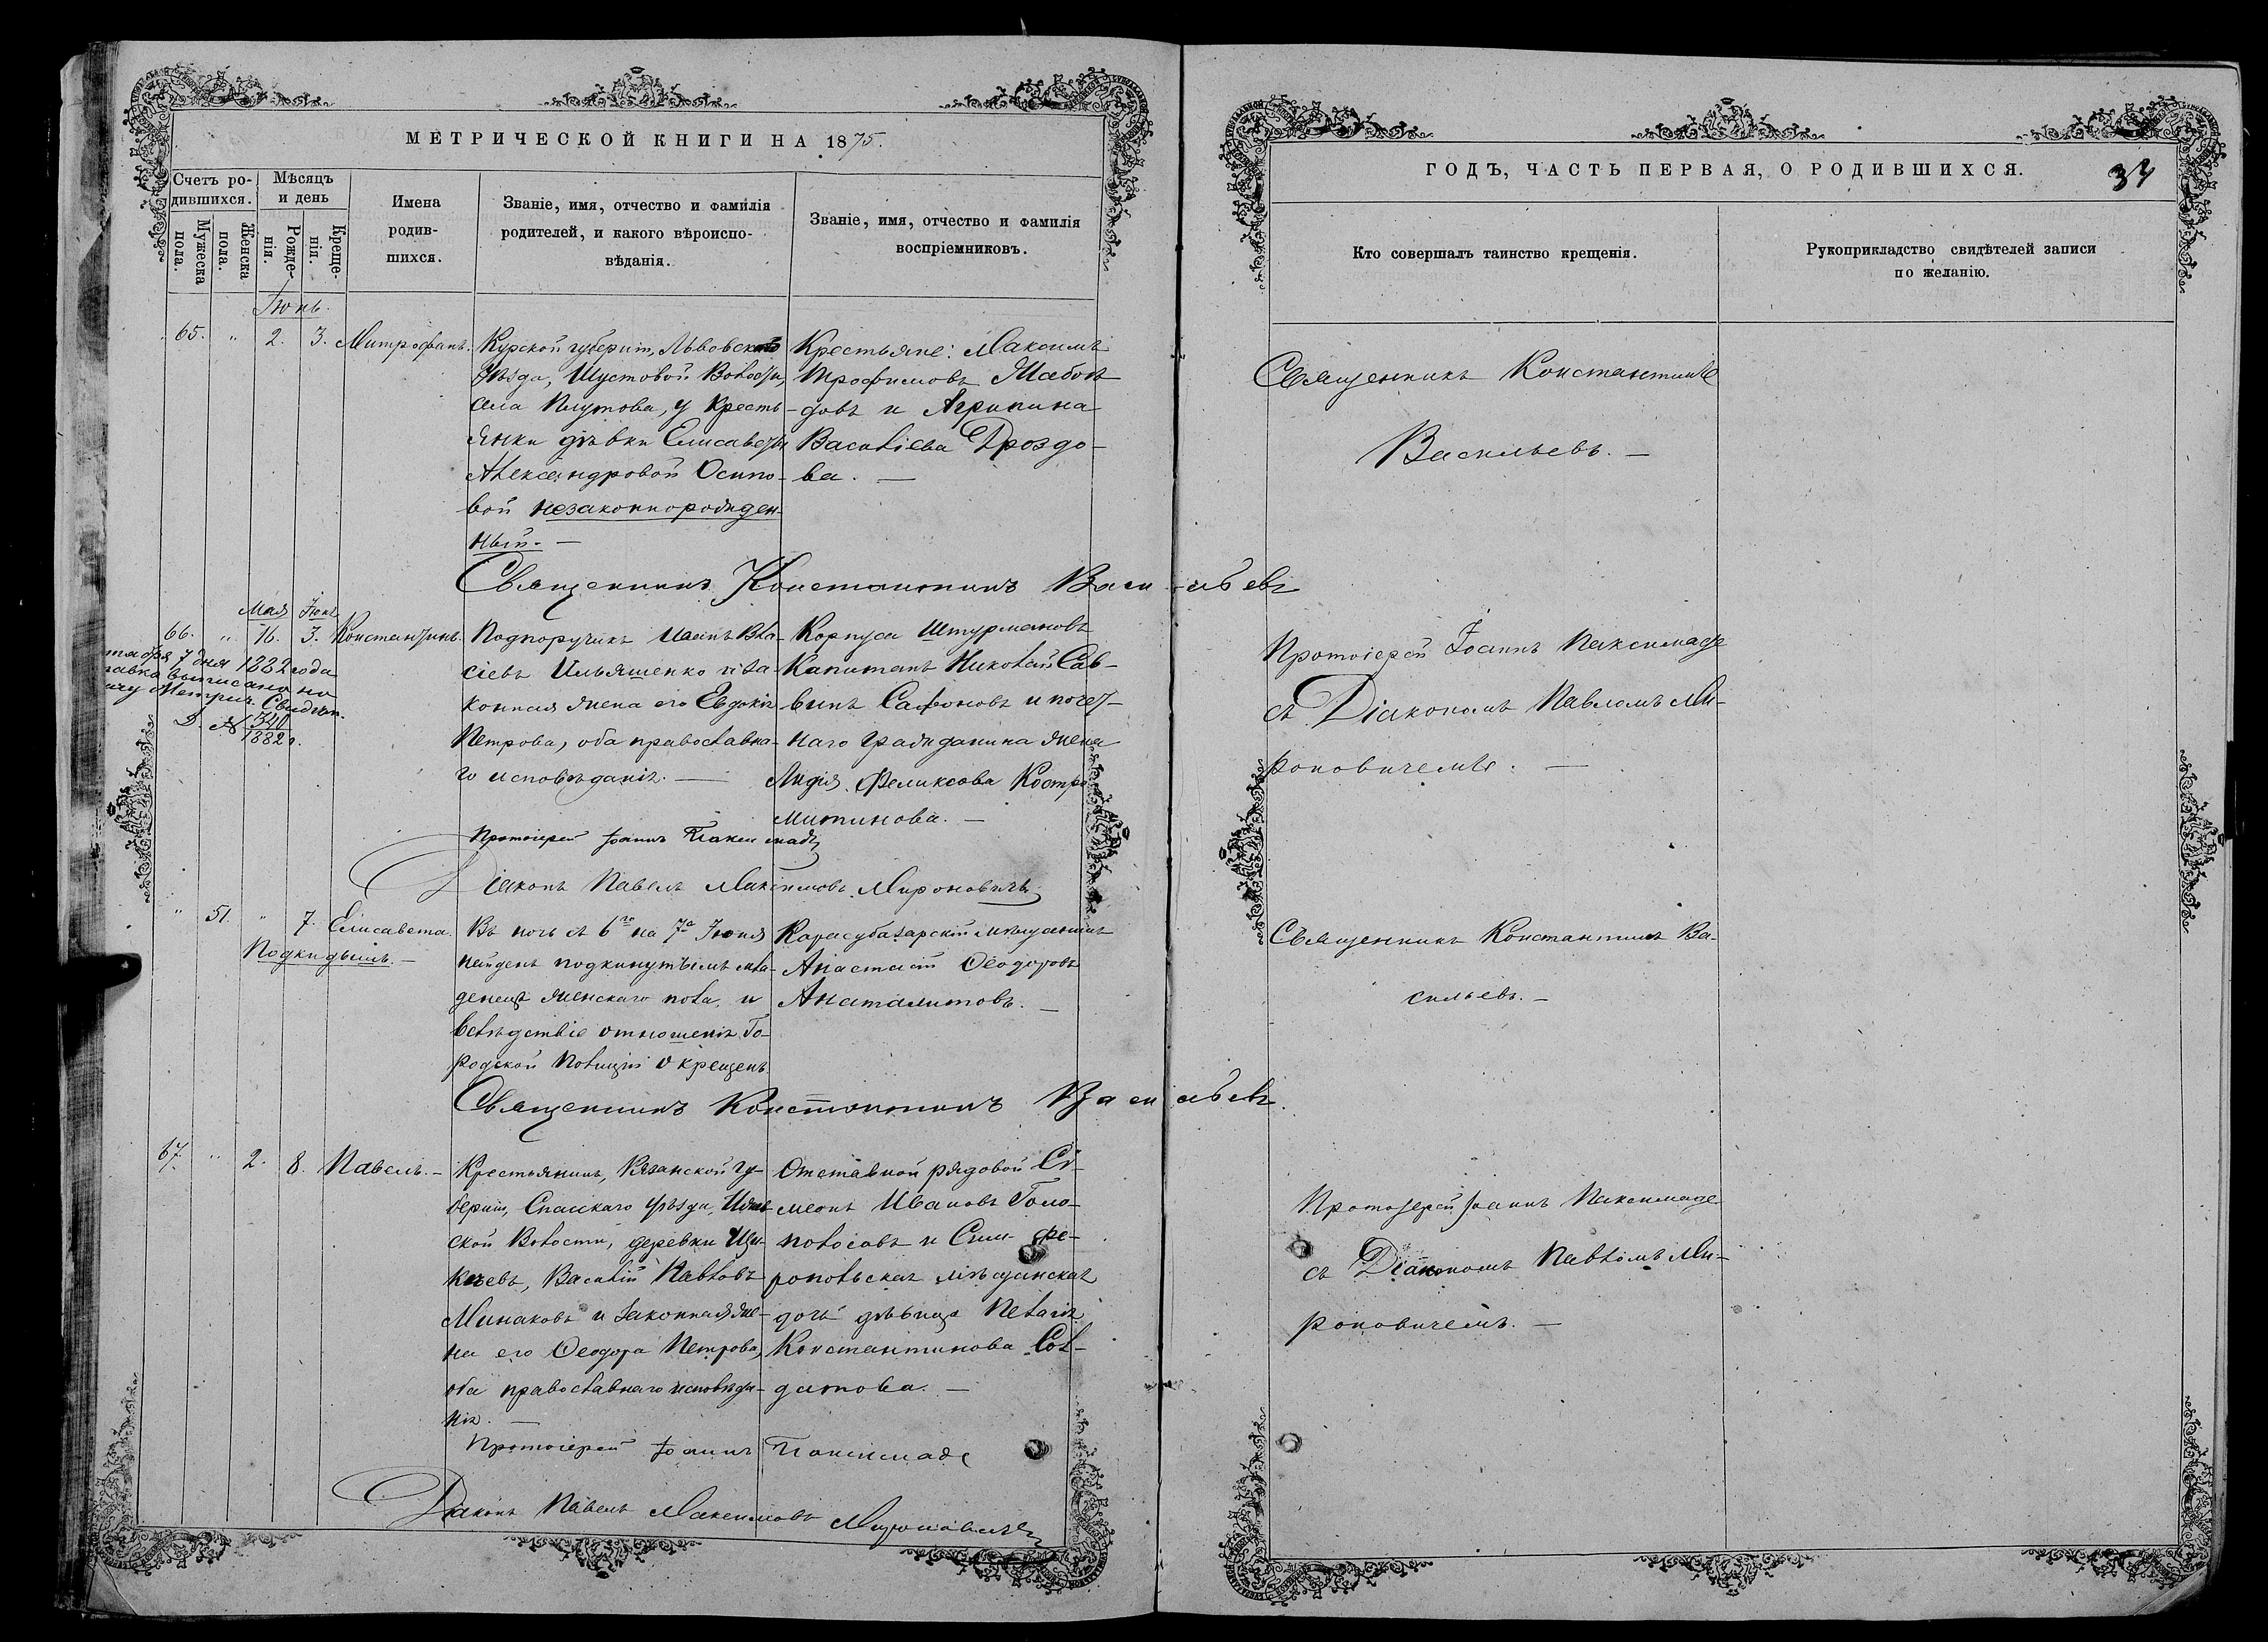 МЕТРИЧЕСКОЙ КНИГИ НА 1875.
Счетъ ро-
дившихся.
Мужеска
пола.
Женска
пола.
Мѣсяцъ
и день
Рожде-
нія.
Креще-
нія.
Имена
родив-
шихся.
Званіе, имя, отчество и фамилія
родителей, и какого вѣроиспо-
вѣданія.
Званіе, имя, отчество и фамилія
воспріемниковъ.
Іюнь.
65. " 2. 3. Митрофанъ.
Курской губерніи, Львовскаго
Уѣзда, Шустовой Волости,
села Плутова, у кресть-
янки дѣвки Елисаветы
Александровой Осипо-
вой незаконнорожден-
ный. —
Крестьяне: Максимъ
Трофимовъ
довъ и Агрипина
Василіева Дроздо-
ва. —
Священникъ Константинъ Васильевъ
Мая Іюнь
66. " 16. 3. Константинъ.
7 дня 1882 года
выписано на
Метрич. Свидѣт.
№ 340
1882 г.
Подпоручикъ Иванъ Вла-
сіевъ Ильяшенко и за-
конная жена его Евдокія
Петрова, оба православна-
го исповѣданія. —
Корпуса Штурмановъ
Капитанъ Николай Сав-
винъ Сафоновъ и почет-
наго гражданина жена
Лидія Феликсова Костра-
митинова. —
Протоіерей Іоаннъ Паксимаде
Діаконъ Павелъ Максимовъ Мироновичъ
" 51. " 7. Елисавета.
Подкидышъ. —
Въ ночь съ 6го на 7е Іюня
найденъ подкинутымъ мла-
денецъ женскаго пола, и
вслѣдствіе отношенія Го-
родской Полиціи окрещенъ
Карасубазарскій мѣщанинъ
Анастасій Ѳеодоровъ
Анаталитовъ. —
Священникъ Константинъ Васильевъ.
67. " 2. 8. Павелъ. —
Крестьянинъ, Рязанской гу-
берніи, Спаскаго уѣзда,
ской Волости, деревни
Василій Павловъ
Минаковъ и законная же-
на его Ѳеодора Петрова,
оба православнаго исповѣда-
нія. —
Отставной рядовой Си-
меонъ Ивановъ Голо-
полосовъ и Симфе-
ропольская мѣщанская
дочь дѣвица Пелагія
Константинова Сол-
датова. —
Протоіерей Іоаннъ Паксимаде
Діаконъ Павелъ Максимовъ Мироновичъ
ГОДЪ, ЧАСТЬ ПЕРВАЯ, О РОДИВШИХСЯ.
34
Кто совершалъ таинство крещенія.
Рукоприкладство свидѣтелей записи
по желанію.
Священникъ Константинъ
Васильевъ. —
Протоіерей Іоаннъ Паксимаде
съ Діакономъ Павломъ Ми-
роновичемъ. —
Священникъ Константинъ Ва-
сильевъ. —
Протоіерей Іоаннъ Паксимаде
съ Діакономъ Павломъ Ми-
роновичемъ. —